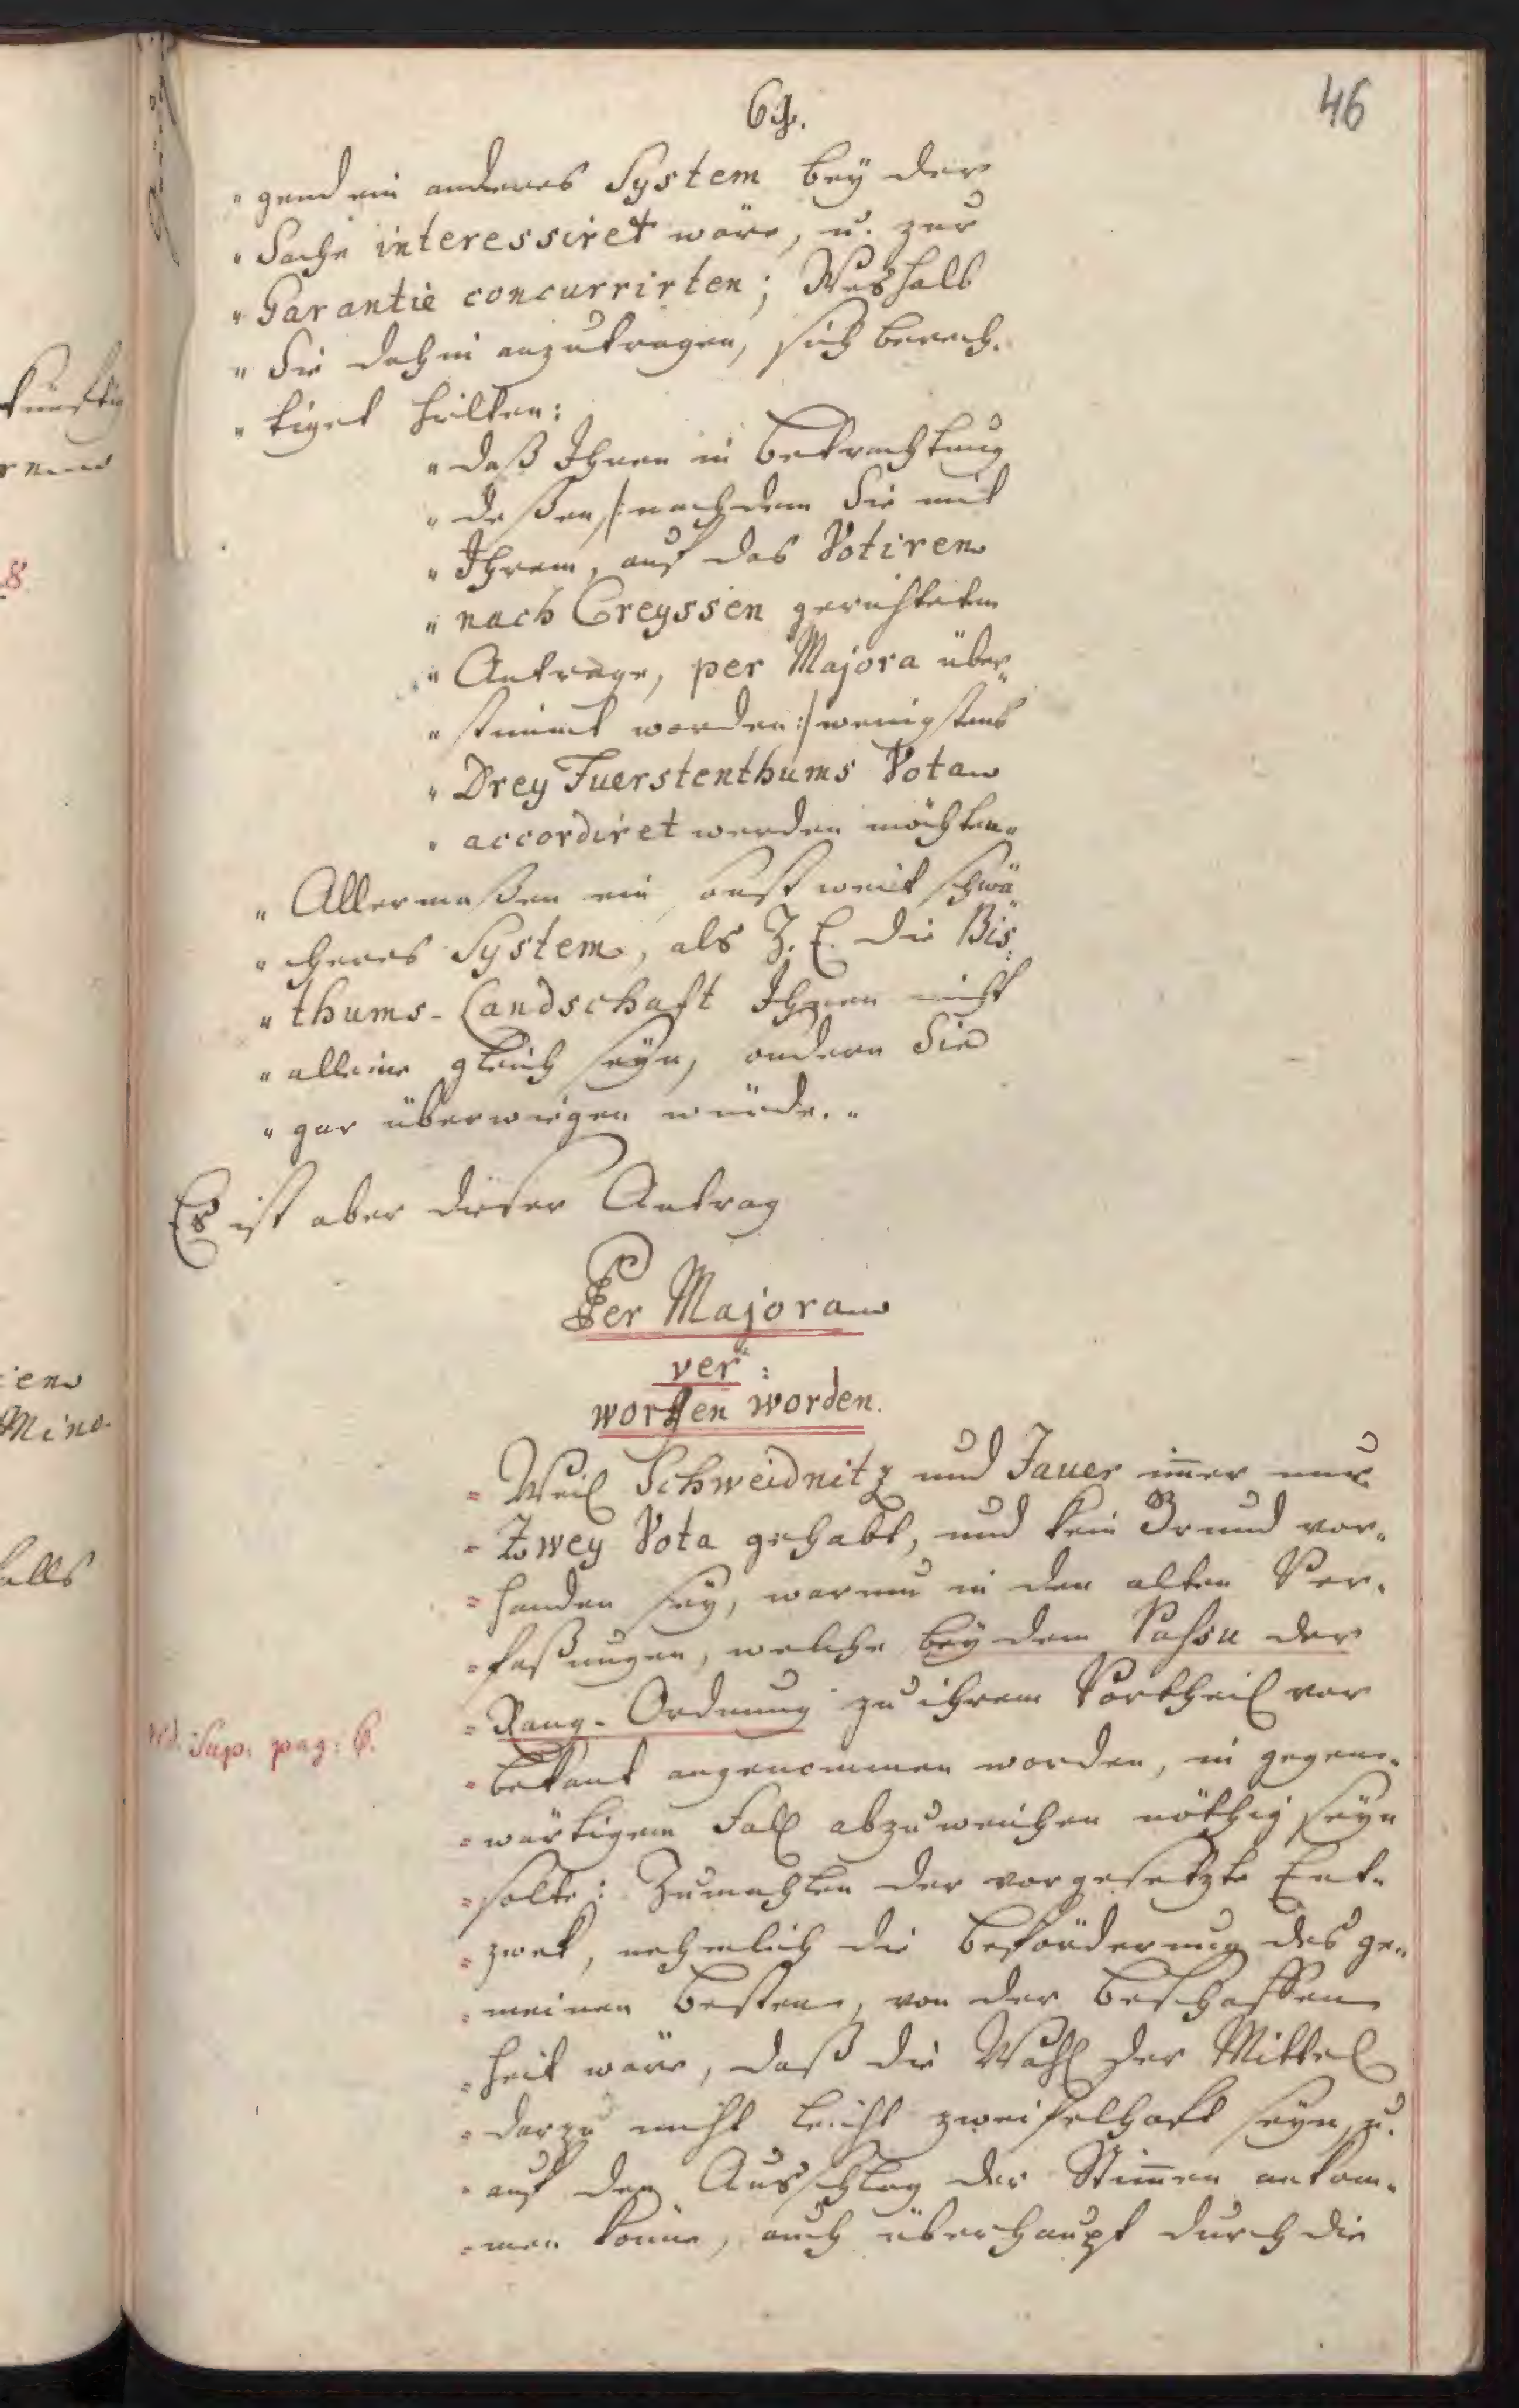 46
" gend ein anderes System bey der
" Sache interessiret wäre, u. zur
" Garantie concurrirten; Weshalb
" Sie dahin anzutragen, sich berech-
" tiget hielten:
" daß Ihnen in Betrachtung
" deßen /: nachdem Sie mit
" Ihrem, auf das Votiren
" nach Creyssen gerichteten
" Antrage, per Majora über-
" stimmt worden :/ wenigstens
" Drey Fuerstenthums Vota
" accordiret werden möchten "
" Allermaßen ein, sonst weit schwä-
" cheres System, als Z. E. die Bis-
" thums-Landschaft Ihnen nicht
" alleine gleich seyn, sondern Sie
" gar überwiegen würde. "
Es ist aber dieser Antrag
Per Majora
ver:
worfen worden.
= Weil Schweidnitz und Jauer im̄er nur
= Zwey Vota gehabt, und kein Grund vor-
= handen sey, warum in den alten Ver-
= faßungen, welche bey dem Passu der
= Rang-Ordnung zu ihrem Vortheil vor
vid. Sup. pag: 6.
= bekant angenommen worden, in gegen-
= wärtigem Fall abzuweichen nöthig seyn
= solte: Zumahlen der vorgesetzte End-
= zwek, nehmlich die Beförderung des ge-
= meinen Bestens, von der Beschaffen-
= heit wäre, daß die Wahl der Mittel
= darzu nicht leicht zweifelhaft seyn, u.
= auf den Ausschlag der Stim̄en ankom-
= men könne, auch überhaupt durch die